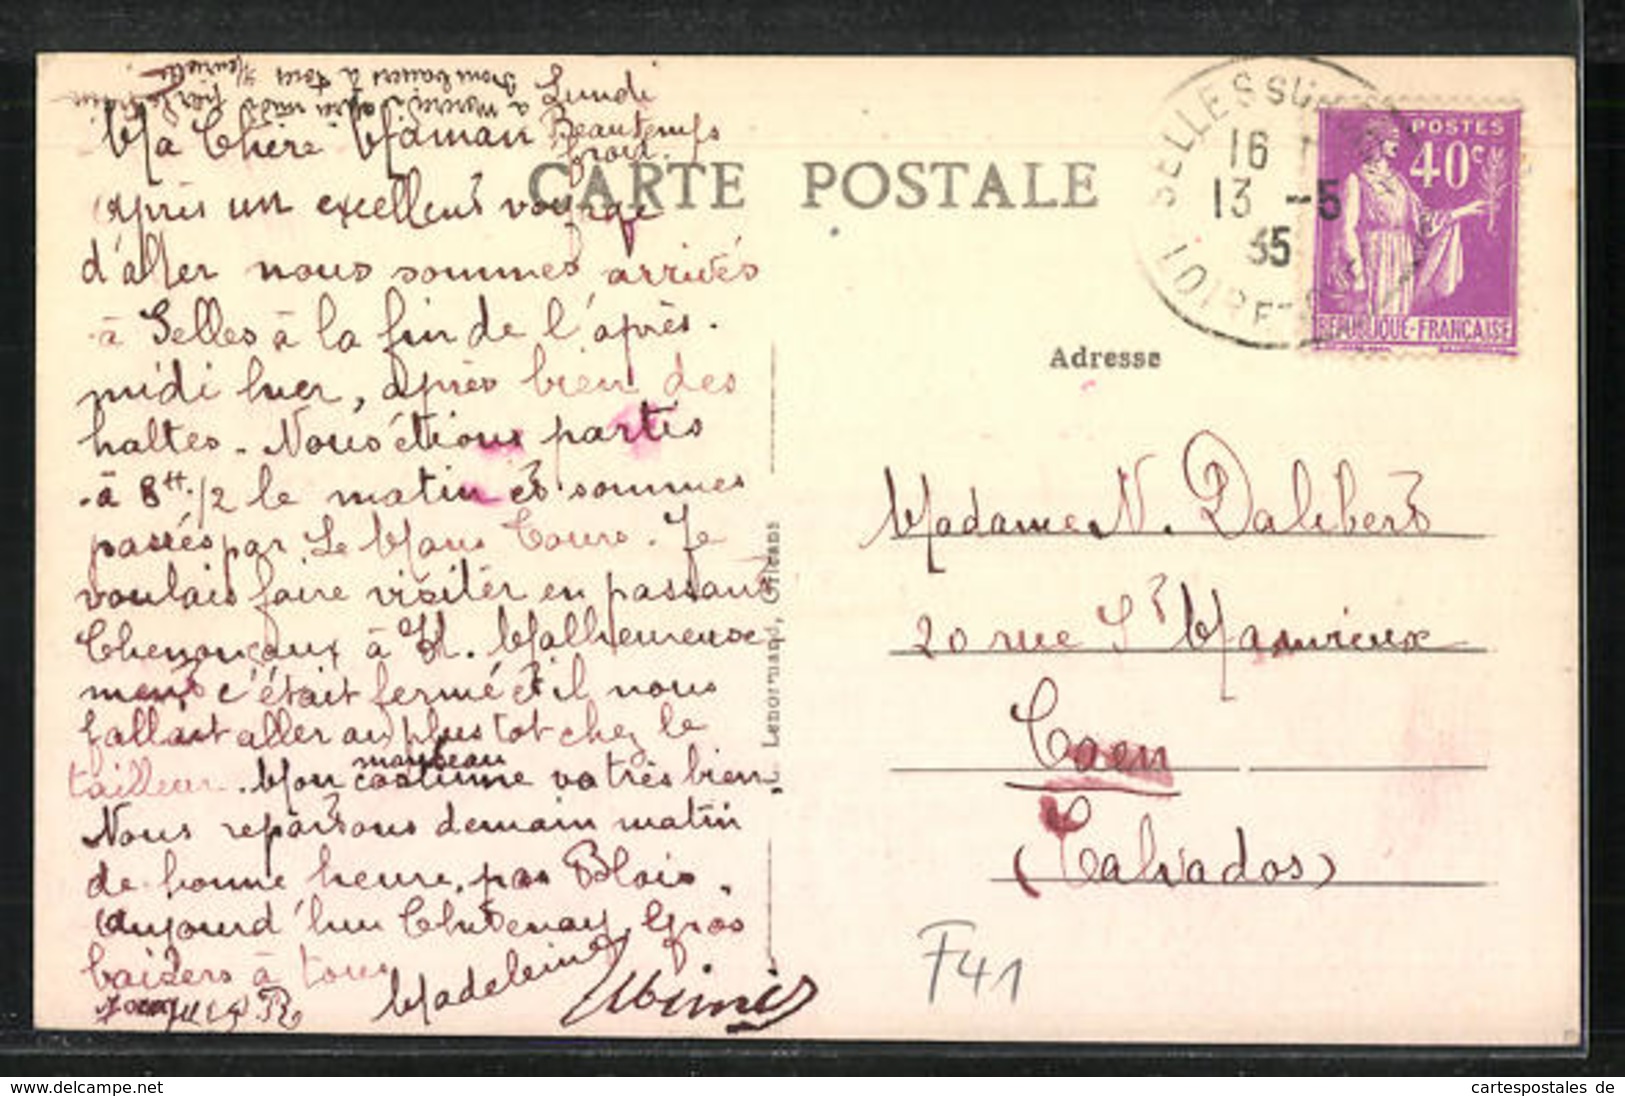 Lundi
Beau temps
froid
Ma Chère Maman
CARTE POSTALE
après un excellent voyage
d'aller nous sommes arrivés
à Selles à la fin de l'après-
midi hier, après bien des
haltes. Nous étions partis
à 8H 1/2 le matin et sommes
passés par Le Mans Tours. Je
voulais faire visiter en passant
Chenonceaux à H. Malheureuse
ment c'était fermé et il nous
fallait aller au plus tot chez le
tailleur. Mon manteau costume va très bien
Nous repartons demain matin
de bonne heure, par Blois.
aujourd'hui Chatenay. Gros
baisers à tous
Madeleine
a mercredi après midi
bons baisers à tous Henriette
Lenormand, Orléans
SELLES SUR
16
13 -5
35
LOIR ET
POSTES
40c
REPUBLIQUE-FRANÇAISE
Adresse
Madame N. Dalibert
20 rue St Manvieux
Caen
(Calvados)
F41
www.delcampe.net
cartespostales de